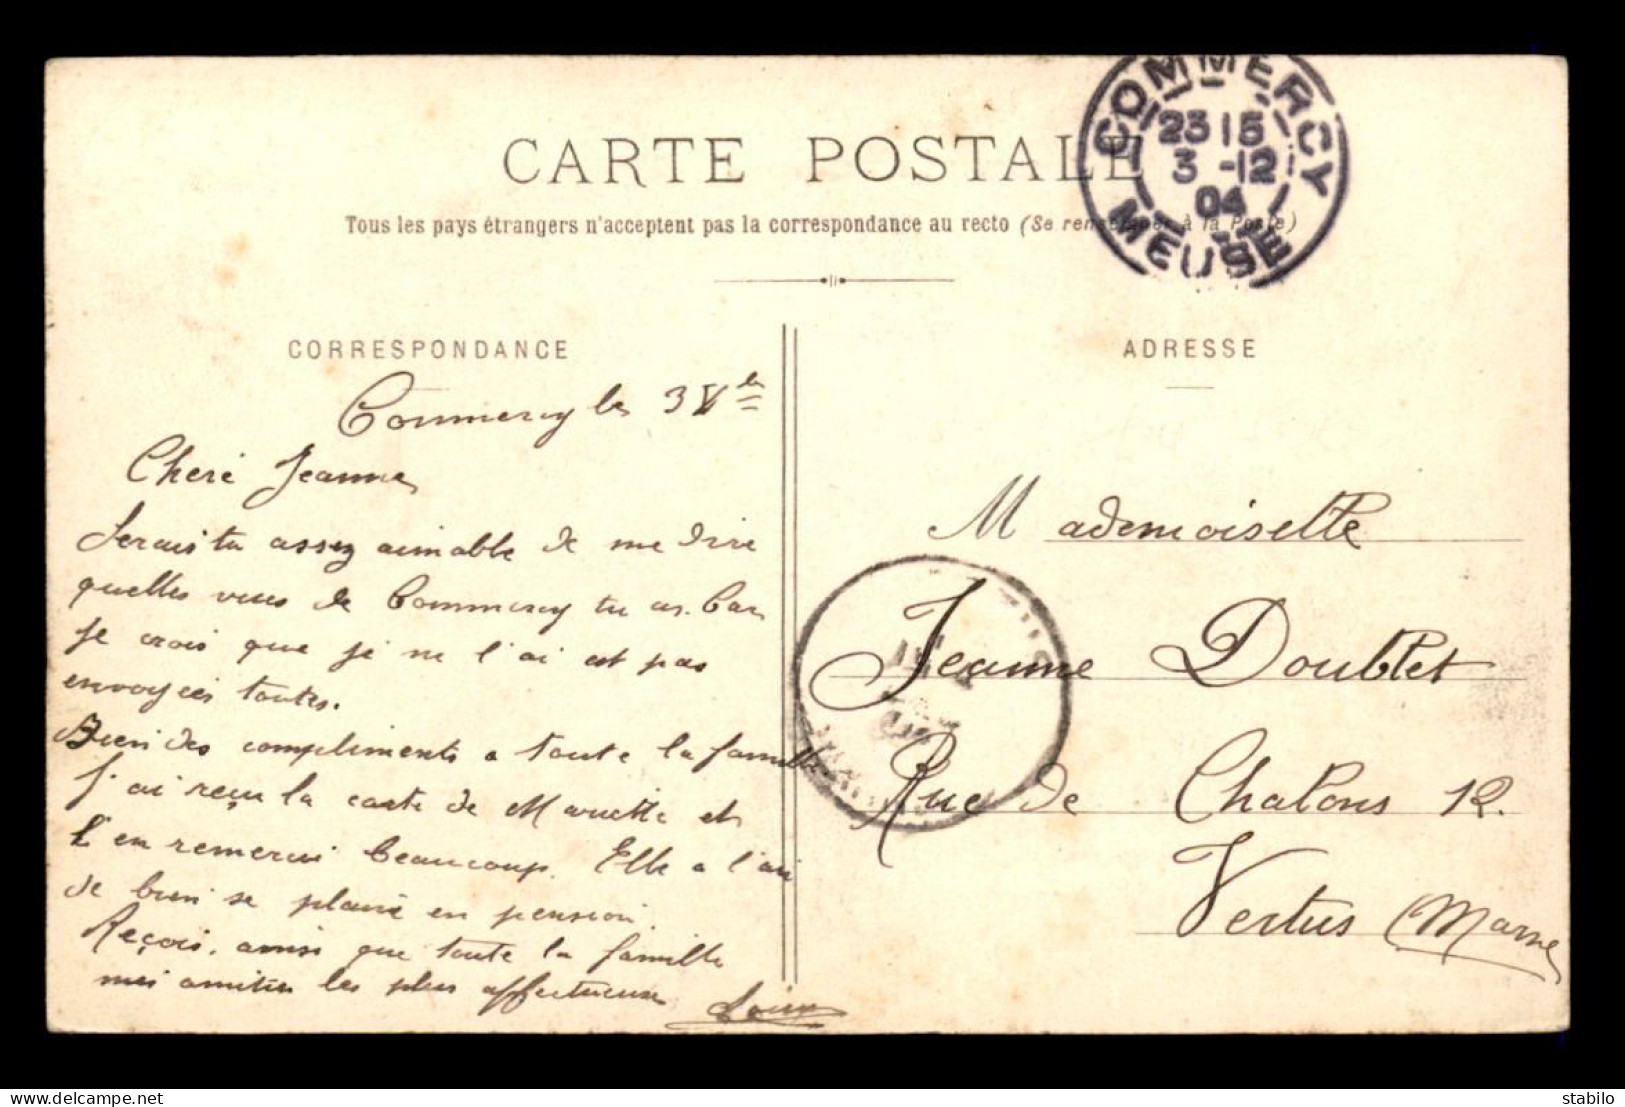 COMMERCY
23 15
3 -12
04
MEUSE
CARTE POSTALE
Tous les pays étrangers n'acceptent pas la correspondance au recto (Se renseigner à la Poste)
CORRESPONDANCE
Commercy le 3 Xbre
Cheré Jeanne
Serais tu assez aimable de me dire
quelles vues de Commercy tu as. Car
je crois que je ne l'ai est pas
envoyées toutes.
Bien des compliments a toute la famille
J'ai reçu la carte de Mariette et
l'en remercie beaucoup. Elle a l'air
de bien se plaire en pension
Reçois, ainsi que toute la famille
mes amitiés les plus affectueuses
ADRESSE
Mademoiselle
Jeanne Doublet
Rue de Chalons 12.
Vertus (Marne)
delcampe.net
stabilo